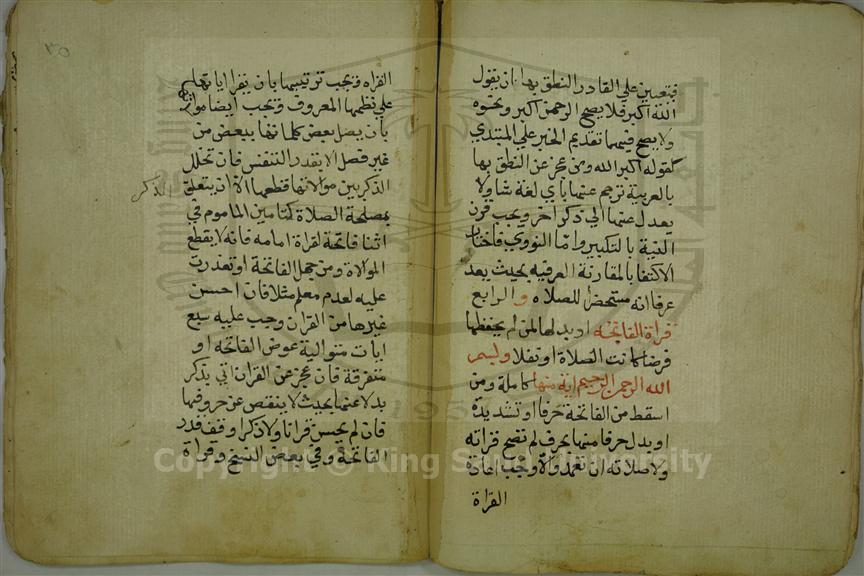 فيتعين علي القادر النطق بها بان يقول
الله اكبر فلا يصح الرحمن اكبر ونحوه
ولا يصح فيهما تقديم الخبر علي المبتدي
كقوله اكبر الله ومن عجز عن النطق بها
بالعربية ترجم عنها باي لغة شا ولا
يعدل عنها الي ذكر اخر ويجب قرن
النية بالتكبير واما النووي فاختار
الاكتفا بالمقارنة العرفيه بحيث يعد
عرفا انه مستحضر للصلاه والرابع
قراة الفاتحه او بدلها لمن لم يحفظها
فرضا كانت الصلاة او نفلا وبسم
الله الرحمن الرحيم اية منها كاملة ومن
اسقط من الفاتحة حرفا او تشديدة
او بدل حرفا منها بحرف لم تصح قراته
ولا صلاته ان تعمد والا وجب اعادة
القراة
٣٥
القراه ويجب ترتيبها بان يقرا اياتها
علي نظمها المعروف ويجب ايضا موالاتها
بان يصل بعض كلماتها ببعض من
غير فصل الا بقدر التنفس فان تخلل
الذكر بين موالاتها قطعها الا ان يتعلق الذكر
بمصلحة الصلاة كتامين الماموم في
اثنا فاتحته لقراة امامه فانه لا يقطع
الموالاة ومن جهل الفاتحة او تعذرت
عليه لعدم معلم مثلا فان احسن
غيرها من القران وجب عليه سبع
ايات متوالية عوض الفاتحه او
متفرقة فان عجز عن القران اتي بذكر
بدلا عنها بحيث لا ينقص عن حروفها
فان لم يحسن قرانا ولا ذكرا وقف قدر
الفاتحة وفي بعض النسخ وقراة
Copyright © King Saud University
195